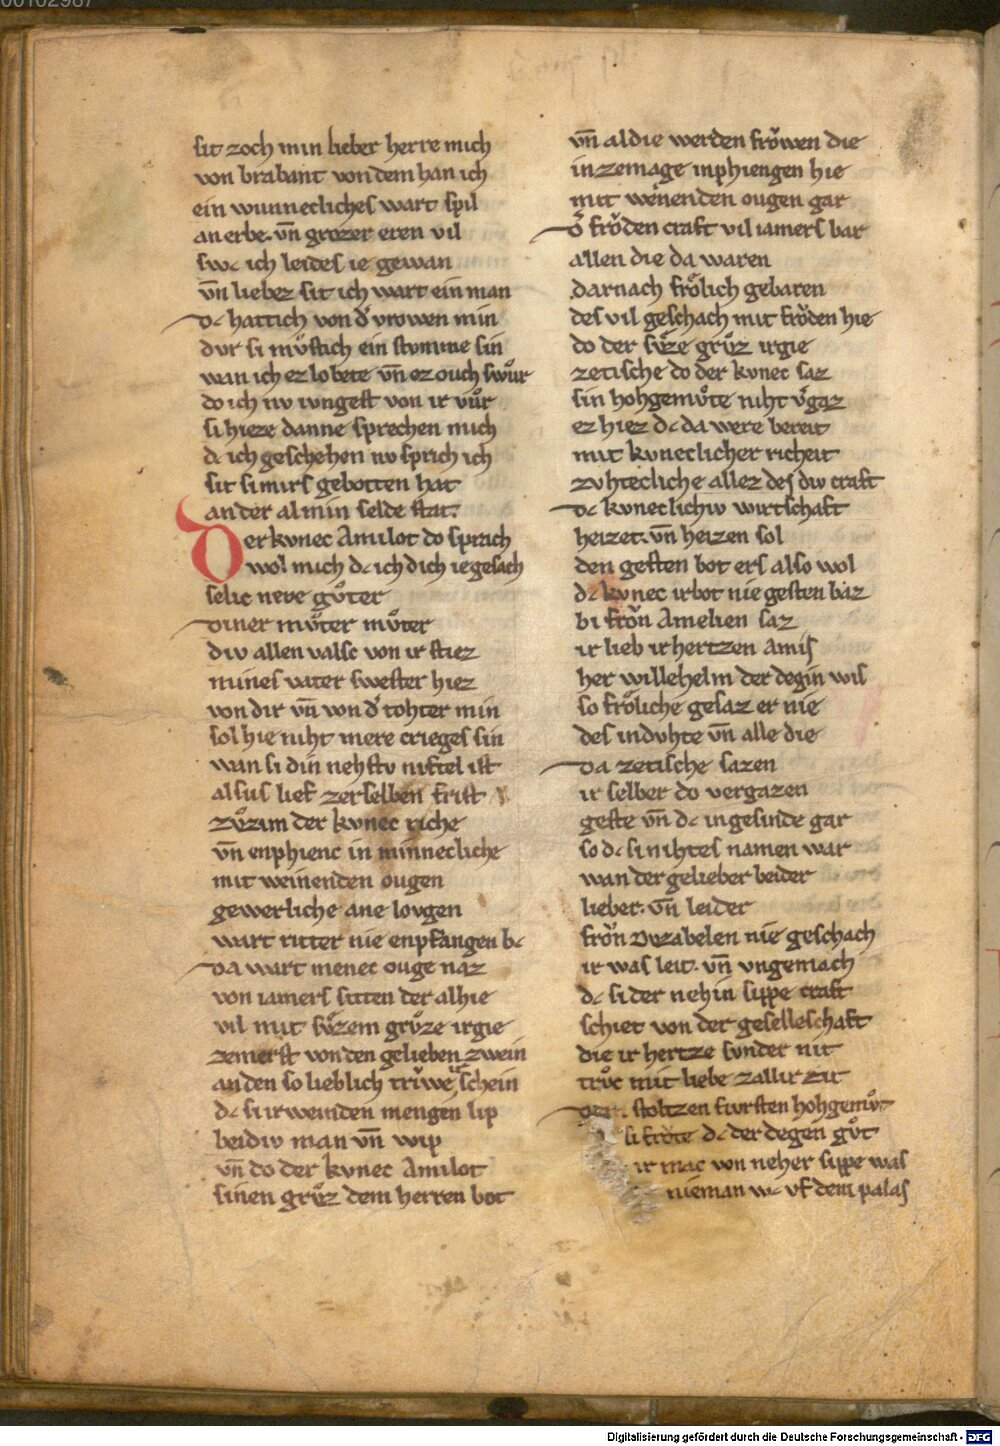 00102987
sit zoch min lieber herre mich
von brabant von dem han ich
ein wunnecliches wart spil
an erbe. vn̄ grozer eren vil
swc ich leides ie gewan
vn̄ liebez sit ich wart ein man
Dc hattich von d͛ vrowen min
dvr si mvͦstich ein stvmme sin
wan ich ez lobete vn̄ ez ouch swuͦr
do ich nv iungest von ir vuͦr
si hieze danne sprechen mich
dc ich geschehen nv sprich ich
sit si mirs gebotten hat
an der al min selde stat.
Der kvnec Amilot do sprach
wol mich dc ich dich ie gesach
selic neve guͦter
Diner mvͦter mvͦter
div allen valsc von ir stiez
mines vater swester hiez
von dir vn̄ von d͛ tohter min
sol hie niht mere crieges sin
wan si din nehstv niftel ist
alsus lief zer selben frist
zvͦzim der kvnec riche
vn̄ enphienc in minnecliche
mit weinenden ougen
gewerliche ane lovgen
wart ritter nie enpfangen bc
Da wart menec ouge naz
von iamers sitten der alhie
vil mit svͤzem grvͦze irgie
zemerst von den gelieben zwein
an den so lieblich triwe schein
dc si irweinden mengen lip
beidiv man vn̄ wip
vn̄ do der kvnec Amilot
sinen grvͦz dem herren bot
vn̄ al die werden froͮwen die
in zemage inphiengen hie
mit wenenden ougen gar
Dͦ froͤden craft vil iamers bar
allen die da waren
darnach froͤlich gebaren
des vil geschach mit froͤden hie
do der svͤze grvͦz irgie
zetische do der kvnec saz
sin hohgemvͦte niht v͛gaz
er hiez dc da were bereit
mit kvneclicher richeit
zvhtecliche allez des div craft
Dc kvneclichiv wirtschaft
heizet. vn̄ heizen sol
den gesten bot ers also wol
dc kvnec irbot nie gesten baz
bi froͮn Amelien saz
ir lieb ir hertzen Amis
her willehelm der degin wis
so froͤliche gesaz er nie
des in dvhte vn̄ alle die
Da zetische sazen
ir selber do vergazen
geste vn̄ dc ingesinde gar
so dc si nihtes namen war
wan der gelieber beider
lieber. vn̄ leider
froͮn Dvzabelen nie geschach
ir was leit. vn̄ vngemach
dc si der nehin sippe craft
schiet von der geselleschaft
die ir hertze svnder nit
trvͦc mit liebe zallir zit
stoltzen fivrsten hohgemvͦt
si froͤte dc der degen guͦt
ir mac von neher sippe was
nieman wc vf dem palas
Digitalisierung gefördert durch die Deutsche Forschungsgemeinschaft - DFG